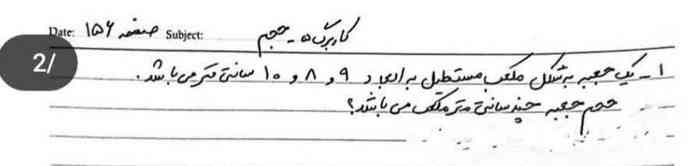 Date: صفحه ۱۵۶ Subject: کاربرگ ۵ - حجم
2/
۱- یک جعبه به شکل مکعب مستطیل به ابعاد ۹ و ۸ و ۱۰ سانتی متر می باشد.
حجم جعبه چند سانتی متر مکعب می باشد؟